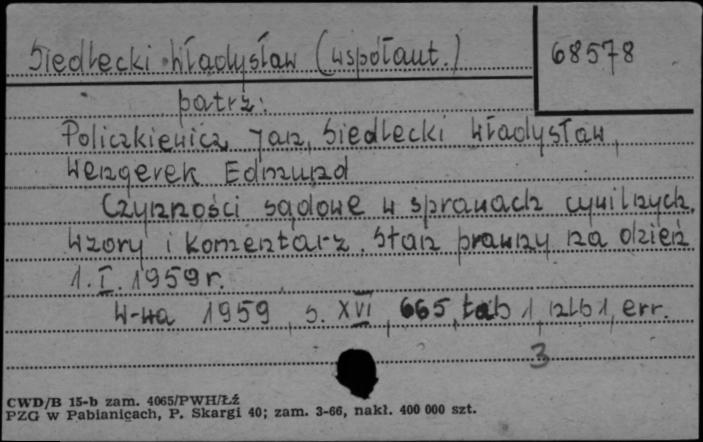 Siedlecki Władysław (współaut.)
68578
patrz:
Policzkiewicz Jan, Siedlecki Władysław,
Wengerek Edmund
Czynności sądowe w sprawach cywilnych.
Wzory i komentarz. Stan prawny na dzień
1. I. 1959 r.
W-wa 1959, s. XVI, 665, tab 1, nlb 1, err.
3
CWD/B 15-b zam. 4065/PWH/Łź
PZG w Pabianicach, P. Skargi 40; zam. 3-66, nakł. 400 000 szt.